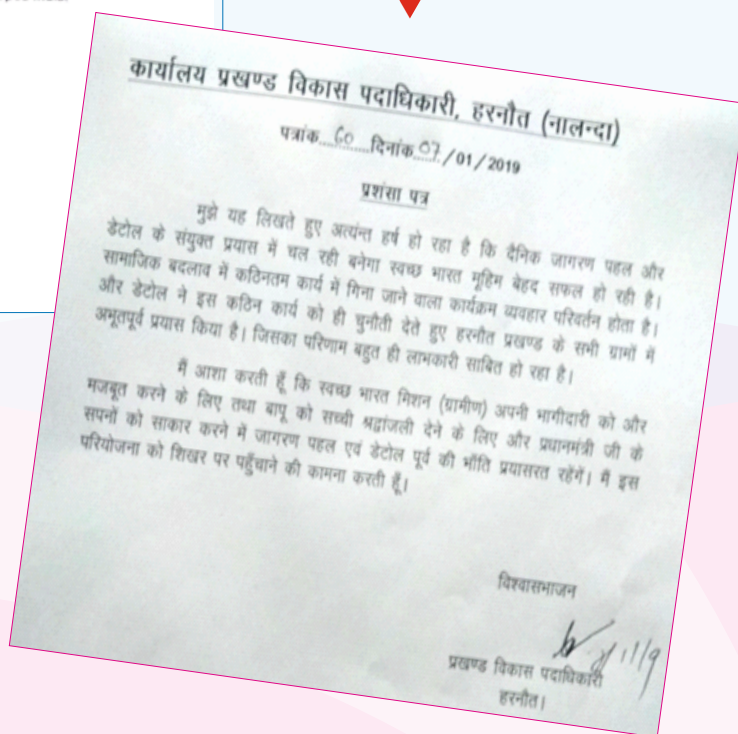 कार्यालय प्रखण्ड विकास पदाधिकारी, हरनौत (नालन्दा)
पत्रांक....60....दिनांक.07./01/2019
प्रशंसा पत्र
मुझे यह लिखते हुए अत्यंन्त हर्ष हो रहा है कि दैनिक जागरण पहल और
डेटोल के संयुक्त प्रयास में चल रही बनेगा स्वच्छ भारत मूहिम बेहद सफल हो रही है।
सामाजिक बदलाव में कठिनतम कार्य में गिना जाने वाला कार्यक्रम व्यवहार परिवर्तन होता है।
और डेटोल ने इस कठिन कार्य को ही चुनौती देते हुए हरनौत प्रखण्ड के सभी ग्रामों में
अभूतपूर्व प्रयास किया है। जिसका परिणाम बहुत ही लाभकारी साबित हो रहा है।
मैं आशा करती हूँ कि स्वच्छ भारत मिशन (ग्रामीण) अपनी भागीदारी को और
मजबूत करने के लिए तथा बापू को सच्ची श्रद्वांजली देने के लिए और प्रधानमंत्री जी के
सपनों को साकार करने में जागरण पहल एवं डेटोल पूर्व की भाँति प्रयासरत रहेंगें। मैं इस
परियोजना को शिखर पर पहुँचाने की कामना करती हूँ।
विश्वासभाजन
प्रखण्ड विकास पदाधिकारी
हरनौत।